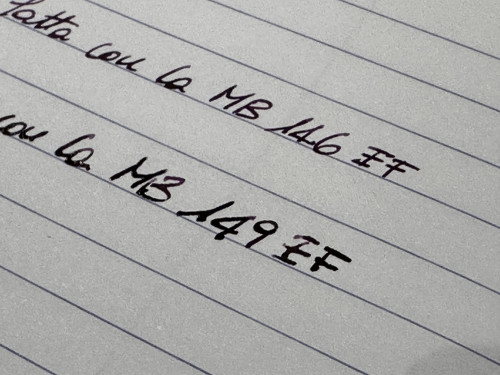 fatta con la MB 146 EF
con la MB 149 EF